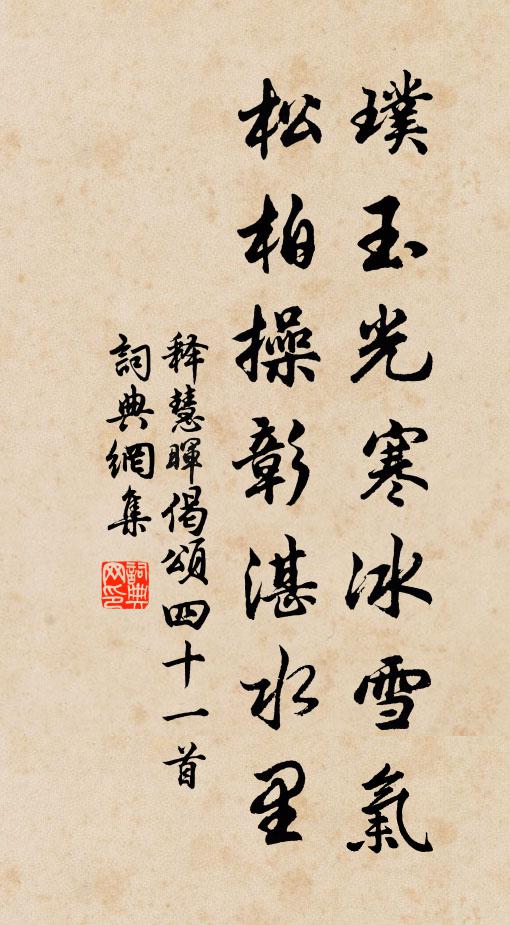 璞玉光寒冰雪氣
松柏操彰湛水里
释慧暉偈頌四十一首
詞典網集
詞典
网印